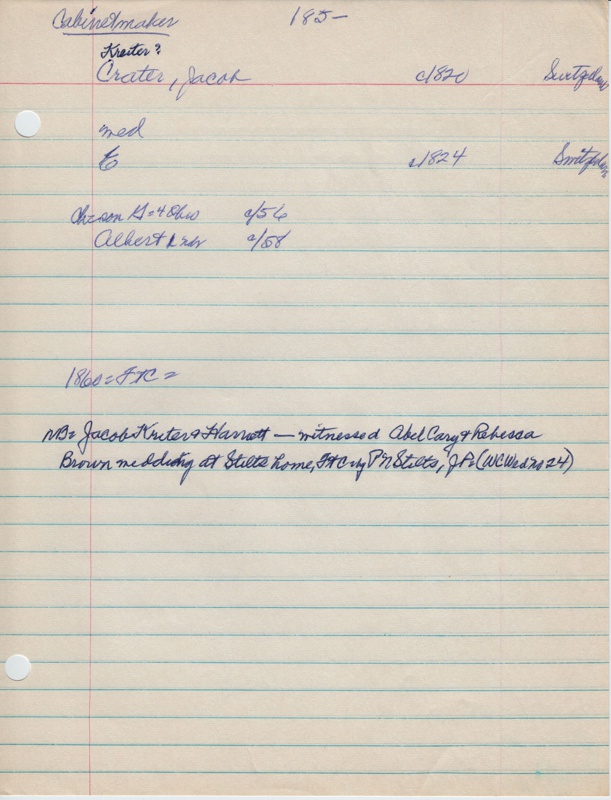 Cabinetmaker 185-
Kreiter?
Crater, Jacob c/1820 Switzerland
med
E c/1824 Switzerland
Ch=son G=4 Ohio c/56
Albert c/58
1860=FtC=
NB= Jacob Kriter & Harriett — witnessed Abel Cary & Rebessa
Brown wedding at Stilts home, FtC by P N Stilts, JP (WC Wed no 24)